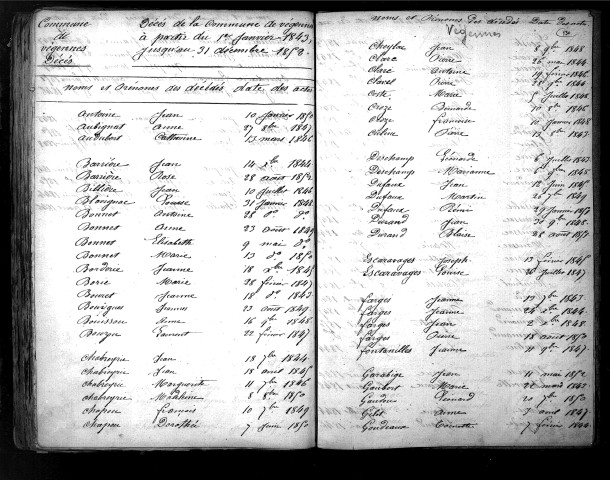 Commune
de
végennes
Décès
Décès de la Commune de végennes
à partir du 1er Janvier 1843,
jusqu'au 31 décembre 1852.
noms et Prénoms des décédés date des actes
Antoine Jean 10 Janvier 1850
Aubignat Anne 27 8bre 1847
Audubert Catherine 13 mars 1846
Barrière Jean 14 xbre 1844
Barrière Rose 28 août 1852
Billière Jean 10 Juillet 1846
Blavignac Louise 31 Janvier 1848
Bonnet Antoine 28 do do
Bonnet Anne 23 août 1849
Bonnet Elisabeth 9 mai do
Bonnet Marie 13 do 1850
Borderie Jeanne 18 xbre 1845
Borie Marie 28 février 1847
Bonnet Jeanne 18 do 1843
Bouigues 23 août 1849
Bouisson Anne 16 9bre 1848
Bouyge Laurent 22 février 1847
Chabreyrie Jean 18 7bre 1844
Chabreyrie Jean 18 août 1845
chabreyrie Marguerite 11 7bre 1846
chabreyrie Madeleine 8 8bre 1850
chapou françois 10 7bre 1849
chapou Dorothée 7 Juin 1850
noms et Prénoms des décédés Date des actes
Végennes
Cheylac Jean 8 9bre 1848
Clare Pierre 26 mai 1844
Clare Antoine 19 février 1846
Pierre 28 9bre 1844
Coste Marie Juillet 1846
Croze Bernarde 1846
Croze francoise 10 Janvier 1848
Pierre 13 8bre 1843
Deschamp Léonarde 6 Juillet 1843
Deschamp Marianne 9bre 1848
Dufaux Jean 12 Juin 1845
Dufaux Martin 26 7bre 1849
Dufaux Rémi 29 Janvier 1852
Durand Jean 31 9bre 1848
Durand Blaise 28 août 1852
Escaravages Joseph 13 février 1845
Escaravages Louise 26 Juillet 1847
farges Jeanne 13 7bre 1843
farges Jeanne 24 xbre 1844
farges Jean 2 xbre 1848
farges Pierre 18 août 1850
fontanilles Jeanne 11 9bre 1847
Garabige Jean 11 mai 1852
Goubert Marie 22 mars 1843
Gaudou Léonard 20 7bre 1850
Gibit Anne 3 août 1847
Goudoux Toinette 7 février 1844